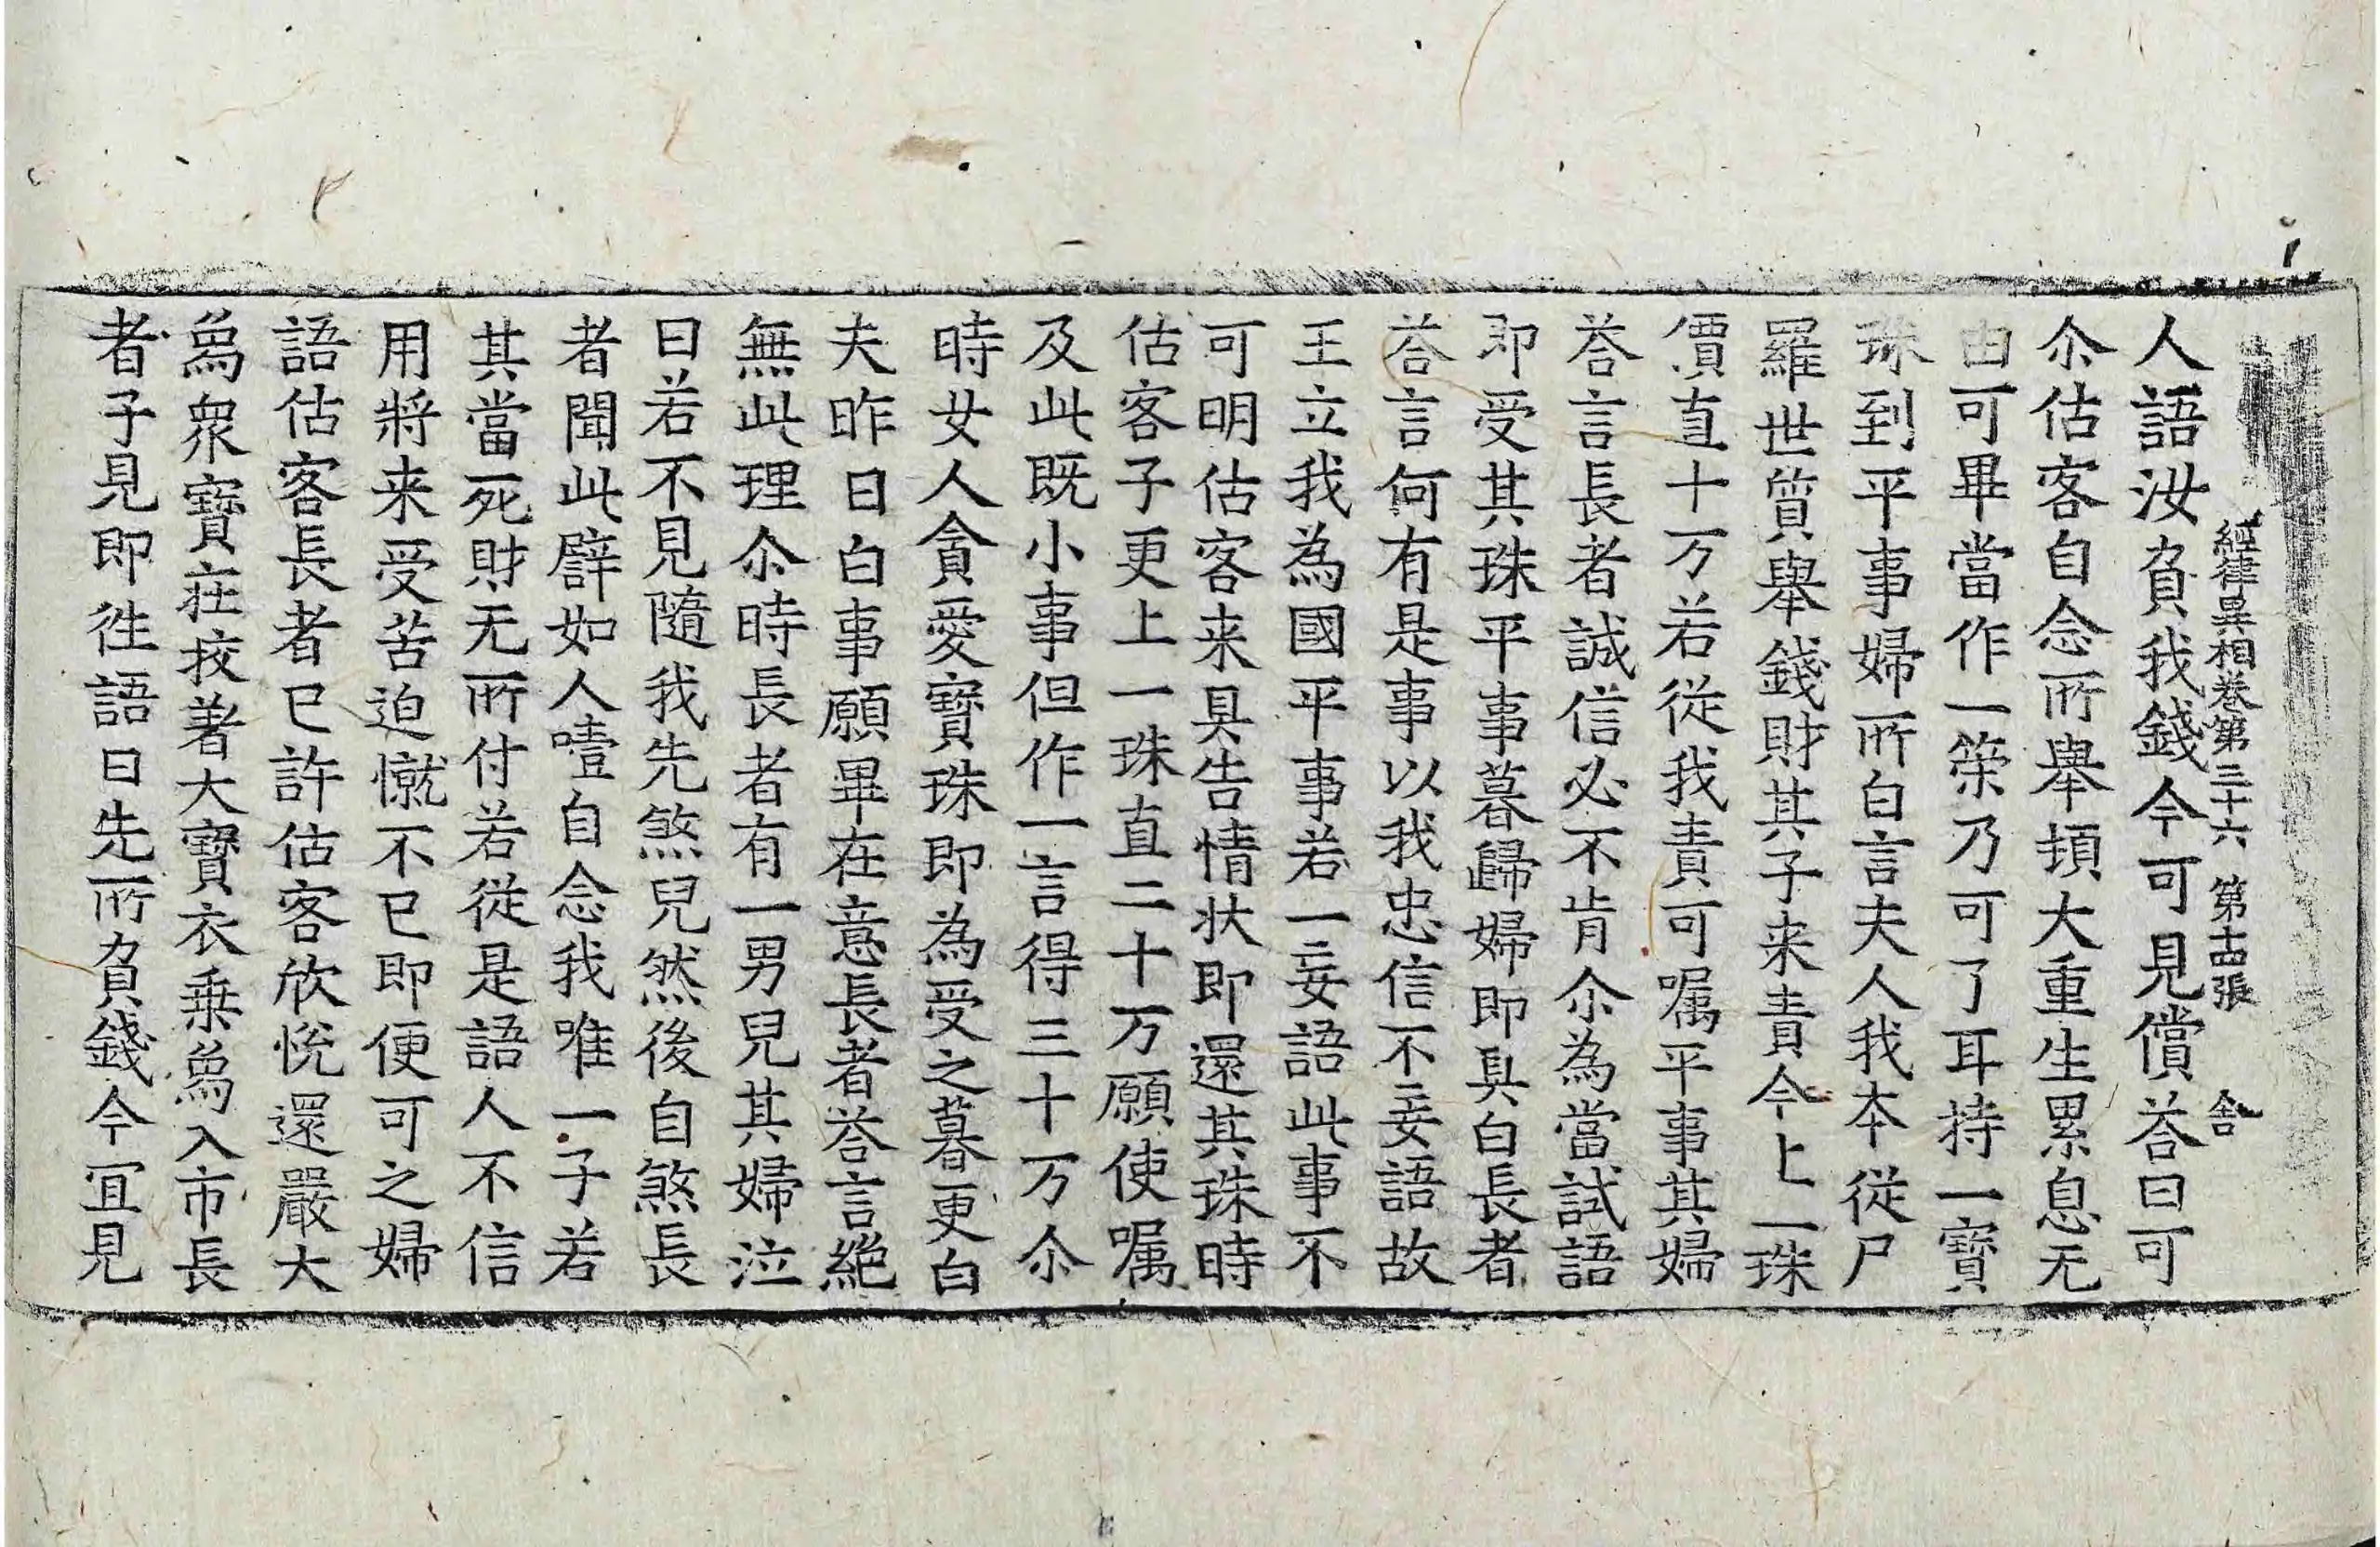 經律異相卷第三十六 第十四張 舍
人語汝負我錢今可見償荅曰可
尒估客自念所舉頓大重生累息无
由可畢當作一䇿乃可了耳持一寶
珠到平事婦所白言夫人我本從尸
羅世質舉錢財其子来責今上一珠
價直十万若從我責可嘱平事其婦
荅言長者誠信必不肯尒為當試語
即受其珠平事暮歸婦即具白長者
荅言何有是事以我忠信不妄語故
王立我為國平事若一妄語此事不
可明估客来具告情状即還其珠時
估客子更上一珠直二十万願使嘱
及此既小事但作一言得三十万尒
時女人貪愛寶珠即為受之暮更白
夫昨日白事願畢在意長者荅言絶
無此理尒時長者有一男兒其婦泣
曰若不見隨我先煞兒然後自煞長
者聞此譬如人噎自念我唯一子若
其當死財无所付若從是語人不信
用將来受苦迫憱不已即便可之婦
語估客長者已許估客欣悅還嚴大
為衆寶莊挍著大寶衣乗為入市長
者子見即徃語曰先所負錢今冝見